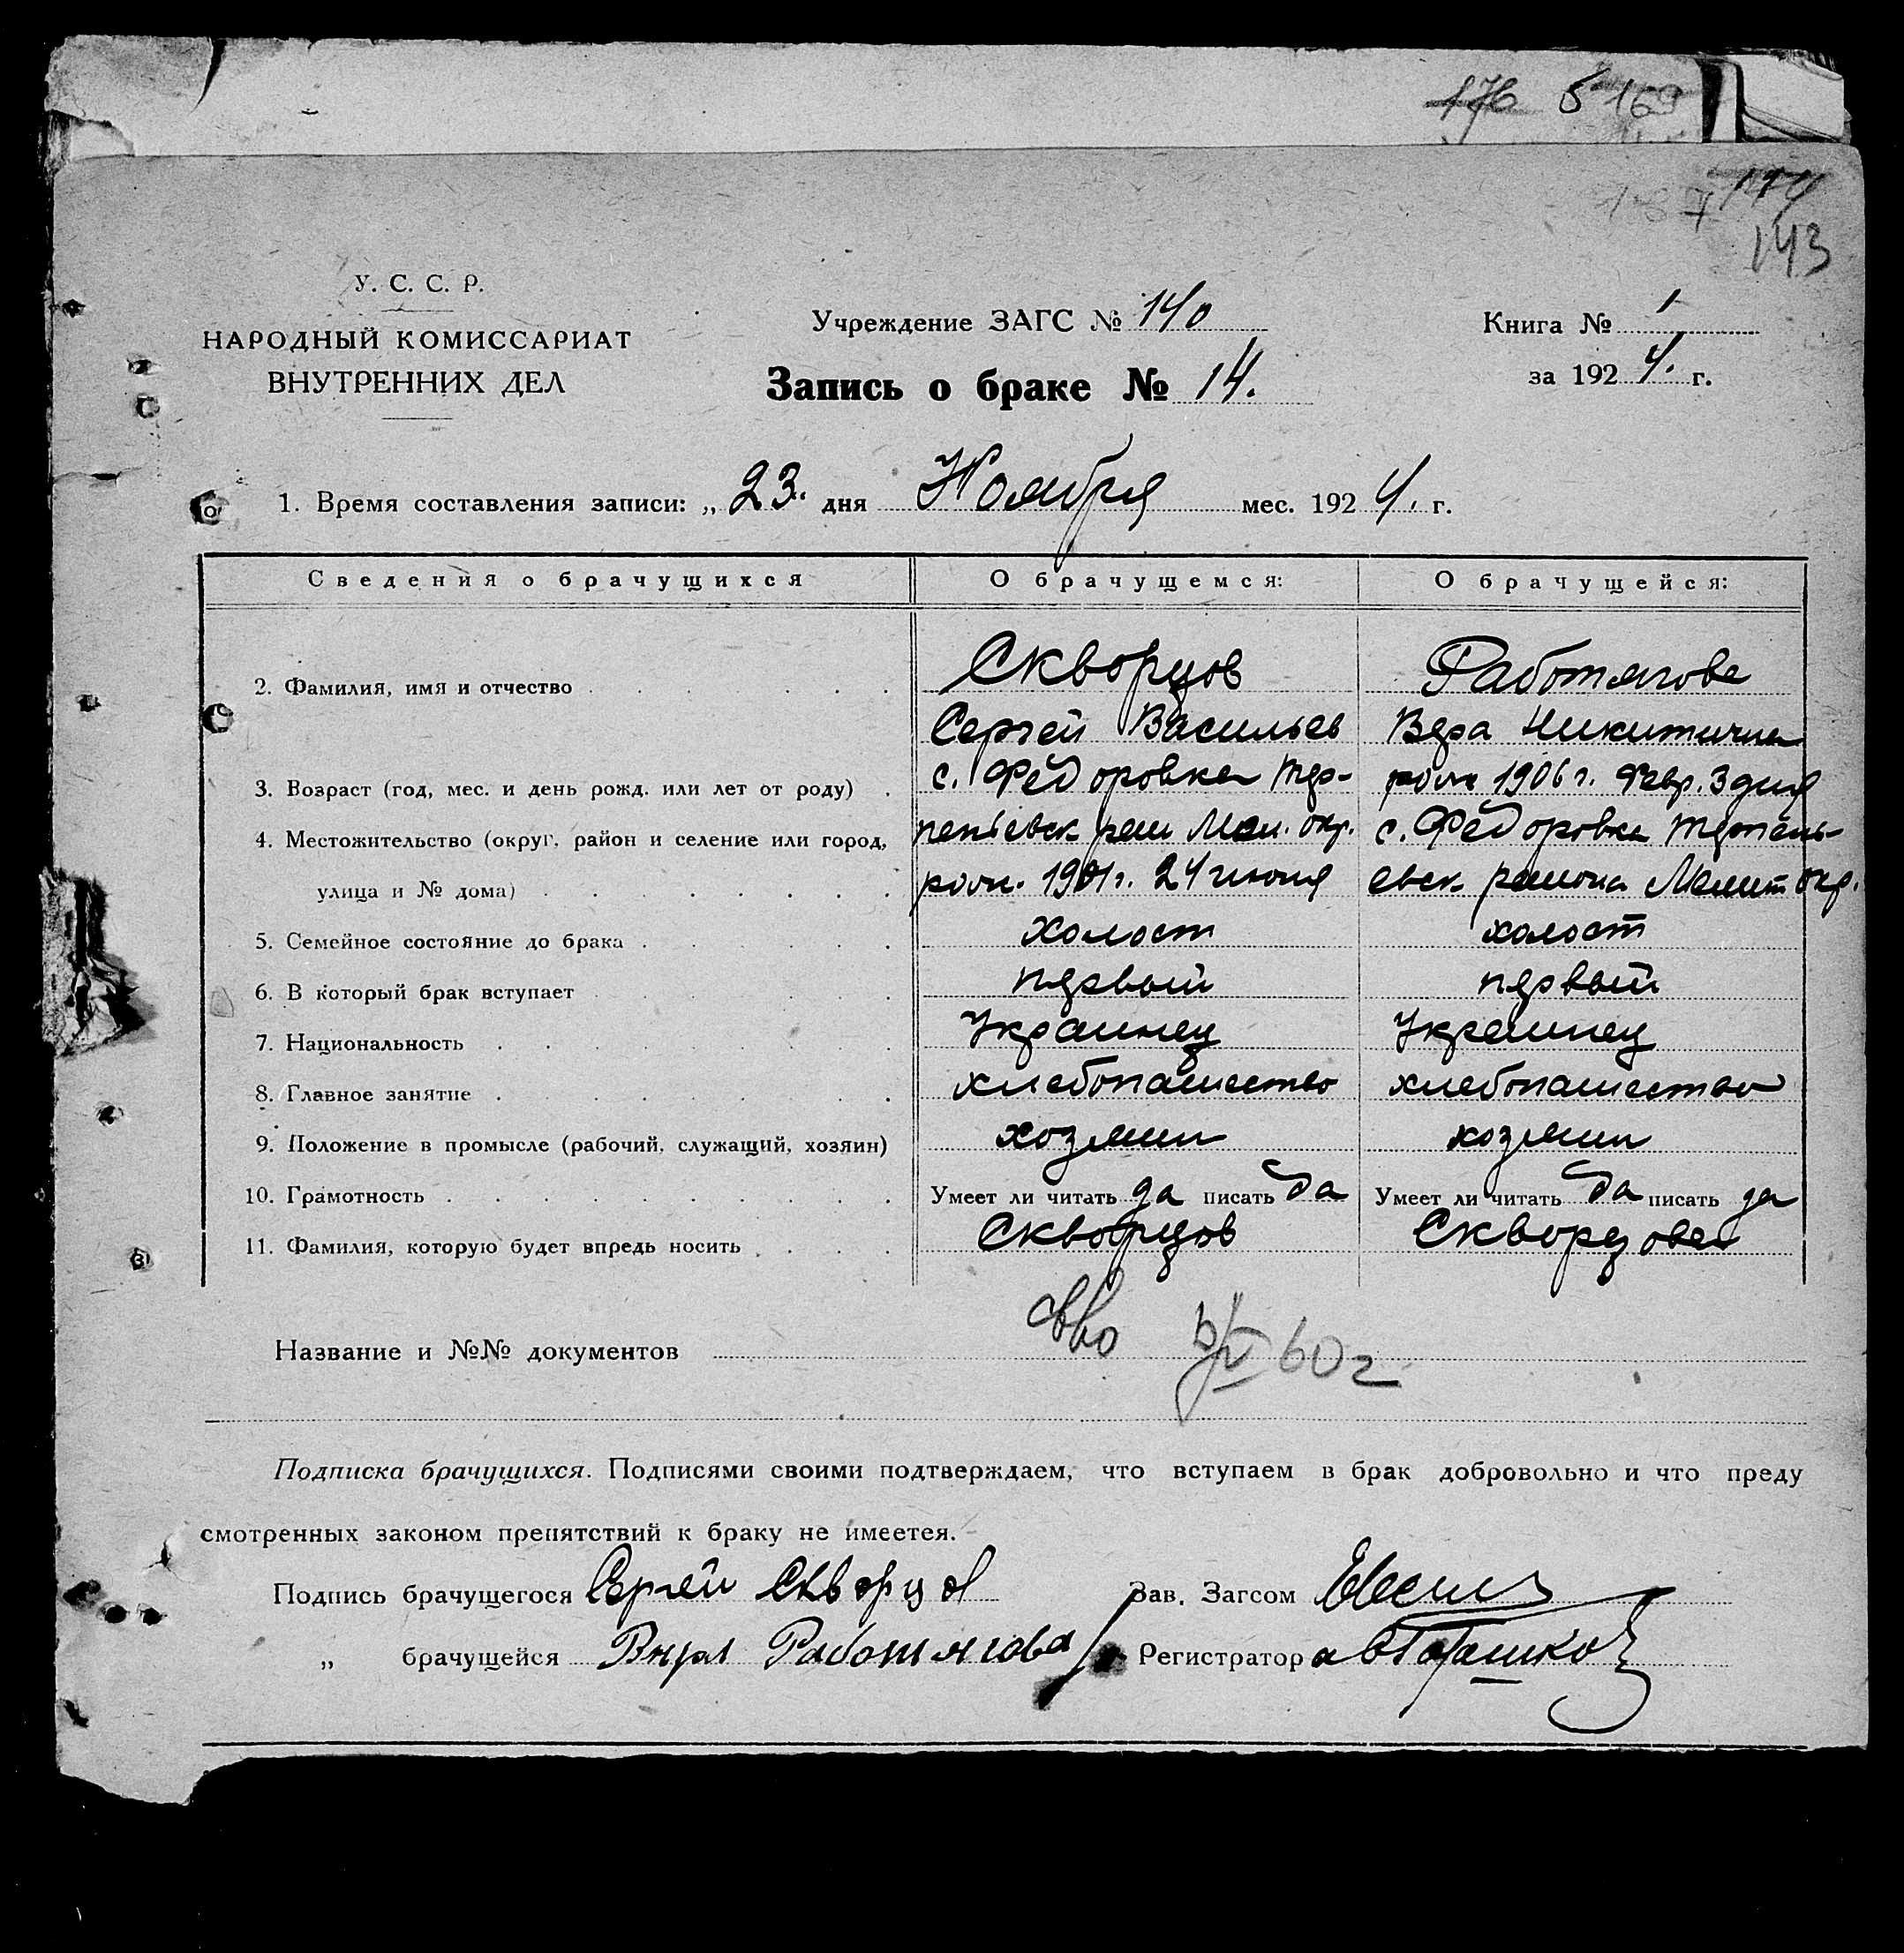 176 б 169
187 174
143
У. С. С. Р.
НАРОДНЫЙ КОМИССАРИАТ
ВНУТРЕННИХ ДЕЛ
Учреждение ЗАГС № 140
Запись о браке № 14.
Книга № 1
за 1924. г.
1. Время составления записи: „23." дня Ноября мес. 1924. г.
Сведения о брачущихся О брачущемся: О брачущейся:
2. Фамилия, имя и отчество Скворцов Работягова
Сергей Васильев Вера Никитична
3. Возраст (год, мес. и день рожд. или лет от роду) с. Федоровка Тер- 1906 г. Февр. 3 дня
4. Местожительство (округ, район и селение или город, пеньевск. Мел. окр. с. Федоровка Терпень-
улица и № дома) 1901 г. 24 июня евск. района Мелит окр.
5. Семейное состояние до брака холост холост
6. В который брак вступает первый первый
7. Национальность Украинец Украинец
8. Главное занятие хлебопашество хлебопашество
9. Положение в промысле (рабочий, служащий, хозяин) хозяин хозяин
10. Грамотность Умеет ли читать да писать да Умеет ли читать да писать да
11. Фамилия, которую будет впредь носить Скворцов Скворцова
Название и №№ документов 60 г
Подписка брачущихся. Подписями своими подтверждаем, что вступаем в брак добровольно и что преду
смотренных законом препятствий к браку не имеетея.
Подпись брачущегося Сергей Скворцов Зав. Загсом
„ брачущейся Вера Работягова Регистратор